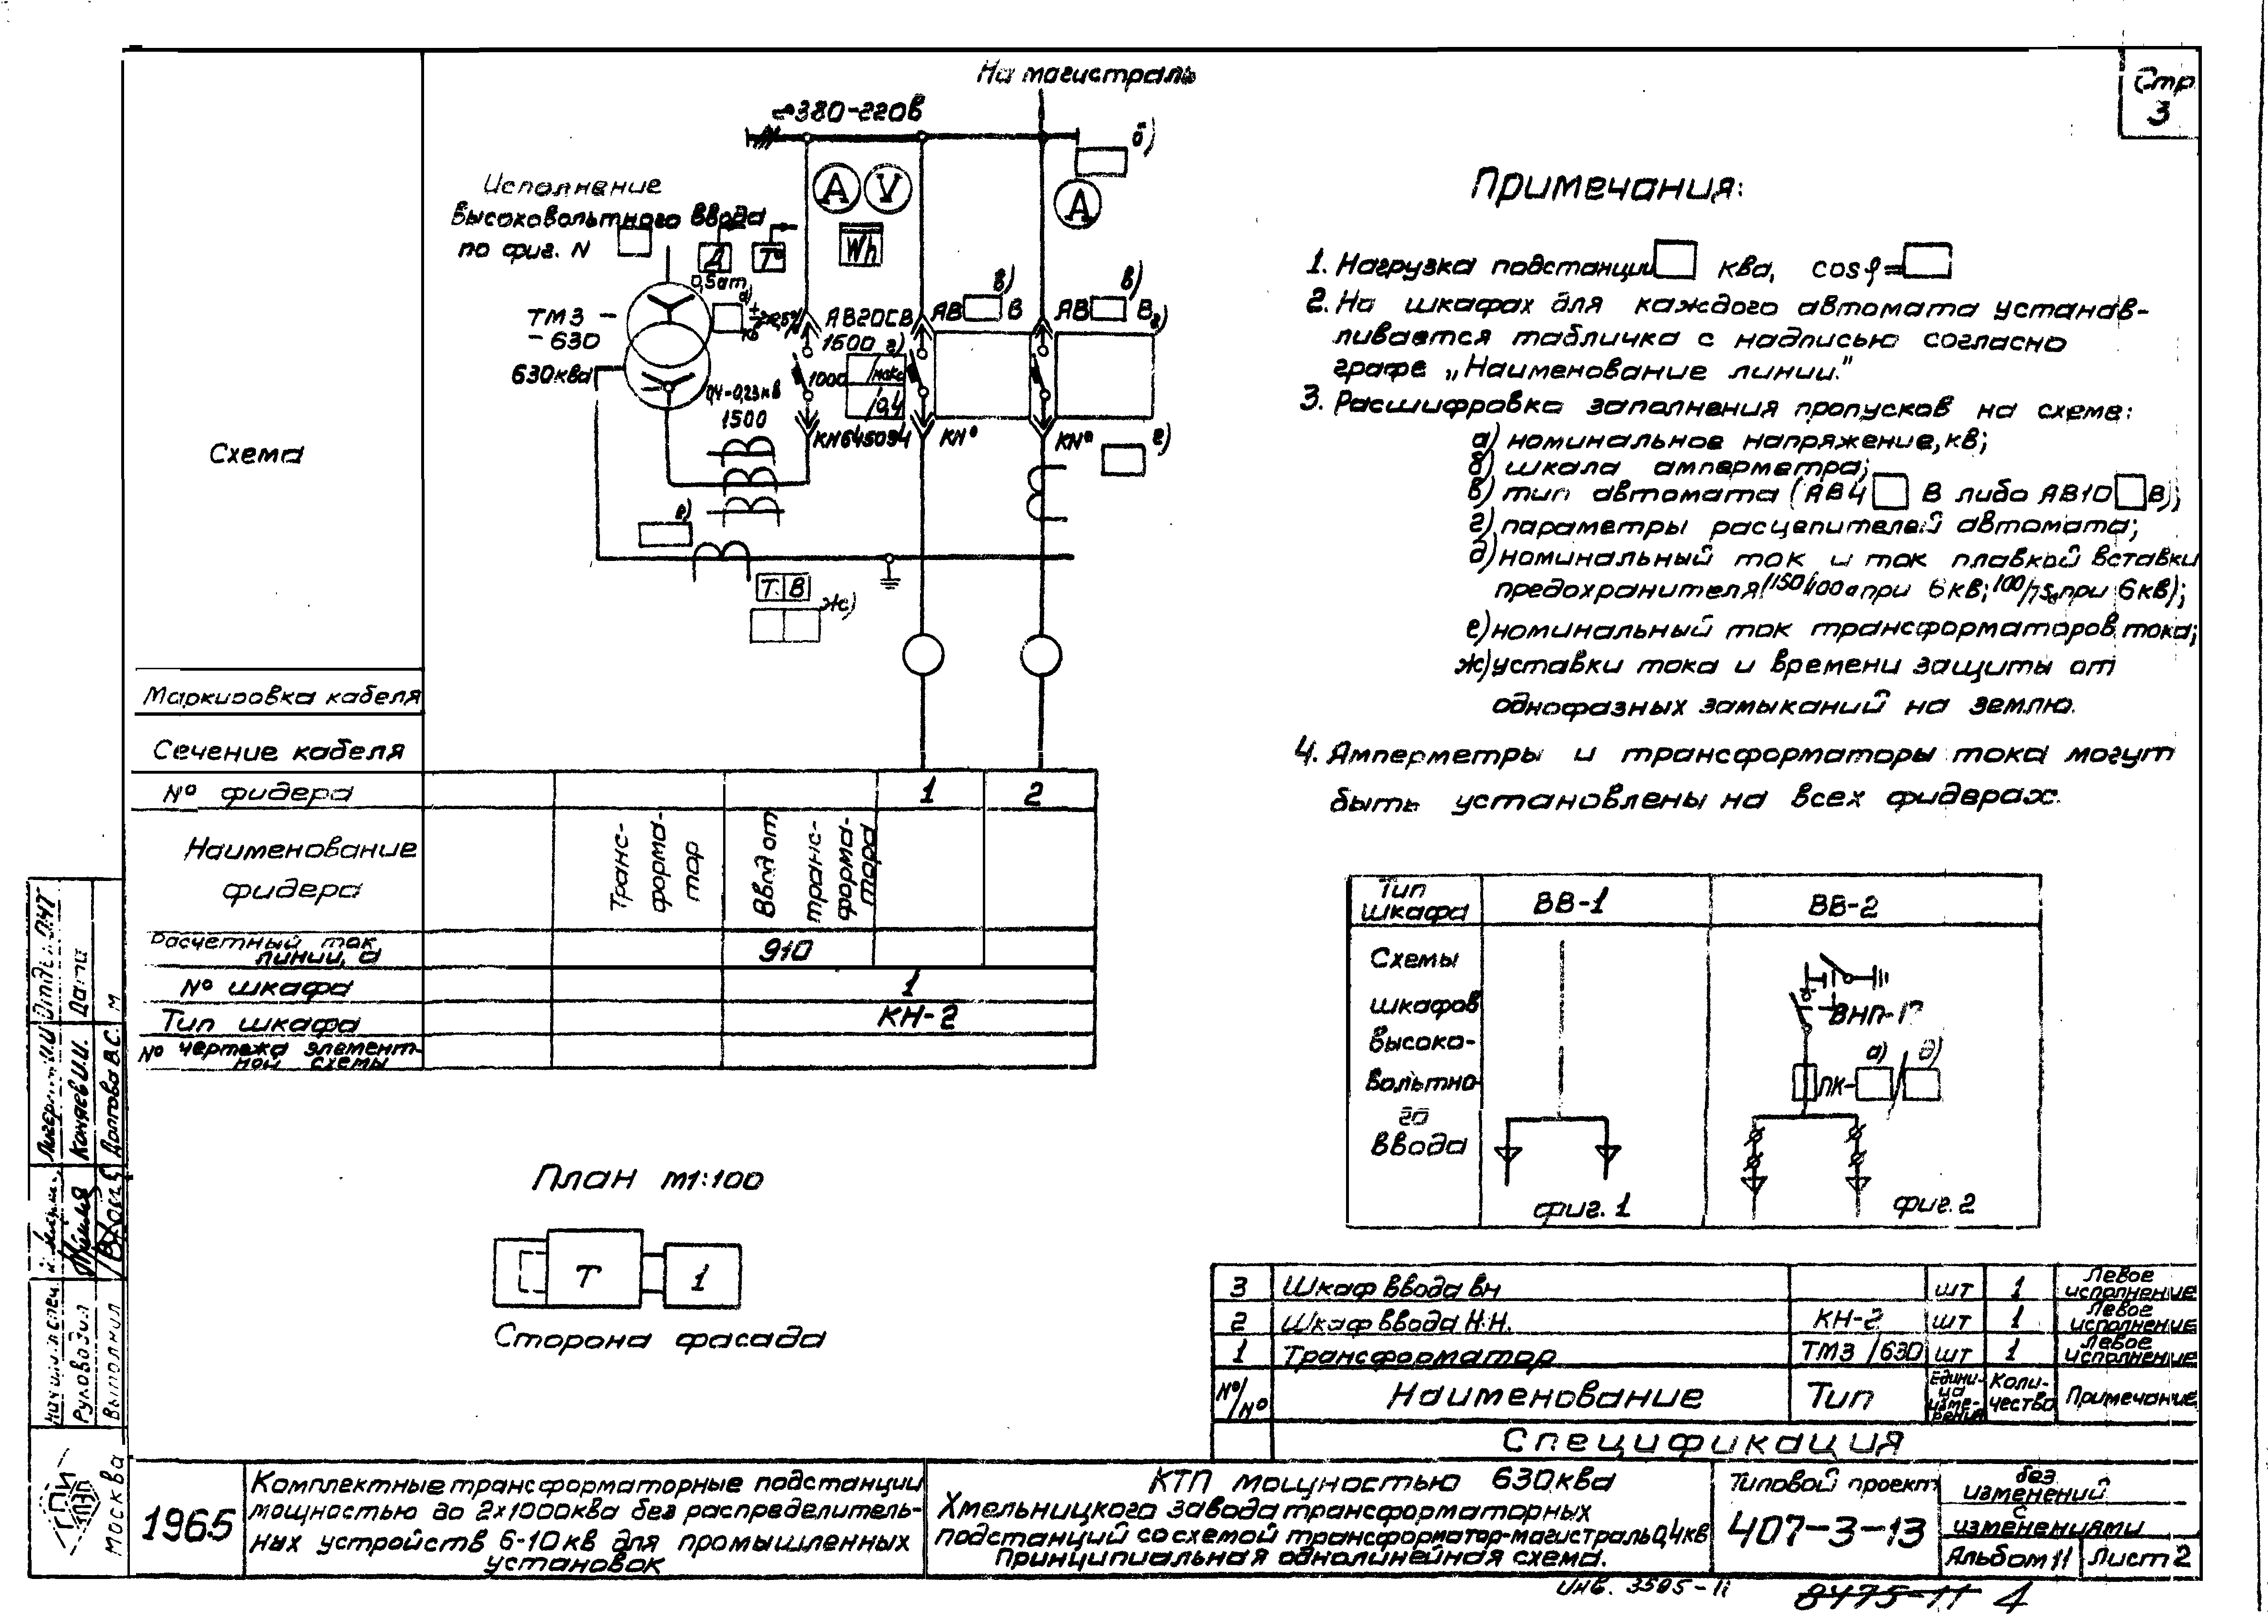 Стр
3
На магистраль
~380-220в
б)
Исполнение
высоковольтного ввода
по фиг. N
А V
А
Wh
Д Т°
0,5ат
а)
ТМЗ -
- 630
630ква
±2х2,5%
кв
0,4-0,23кв
1500
АВ20СВ
1500
1000
г)
макс
0,4
КН645094
в)
АВ В
КN°
в)
АВ В
г)
КN°
г)
е)
Т В
ж)
Схема
Маркировка кабеля
Сечение кабеля
N° фидера
1 2
Наименование
фидера
Транс-
форма-
тор
Ввод от
транс-
форма-
тора
Расчетный ток
линии, а
910
N° шкафа
1
Тип шкафа
КН-2
N° чертежа элемент-
ной схемы
План м1:100
Т 1
Сторона фасада
Примечания:
1. Нагрузка подстанции ква, cosφ=
2. На шкафах для каждого автомата устанав-
ливается табличка с надписью согласно
графе „Наименование линии."
3. Расшифровка заполнения пропусков на схеме:
а) номинальное напряжение, кв;
б) шкала амперметра;
в) тип автомата (АВ4 В либо АВ10 В);
г) параметры расцепителей автомата;
д) номинальный ток и ток плавкой вставки
предохранителя (150/100а при 6кв; 100/75а при 6кв);
е) номинальный ток трансформаторов тока;
ж) уставки тока и времени защиты от
однофазных замыканий на землю.
4. Амперметры и трансформаторы тока могут
быть установлены на всех фидерах.
Тип
шкафа
ВВ-1
ВВ-2
Схемы
шкафов
высоко-
вольтно-
го
ввода
ВНП-17
ПК-
а)
д)
фиг. 1
фиг. 2
3 Шкаф ввода вн шт 1 Левое исполнение
2 Шкаф ввода Н.Н. КН-2 шт 1 Левое исполнение
1 Трансформатор ТМЗ /630 шт 1 Левое исполнение
N°/N° Наименование Тип Едини-ца изме-рения Коли-чество Примечание
Спецификация
1965
Комплектные трансформаторные подстанции
мощностью до 2х1000ква без распределитель-
ных устройств 6-10кв для промышленных
установок
КТП мощностью 630ква
Хмельницкого завода трансформаторных
подстанций со схемой трансформатор-магистраль 0,4кв
Принципиальная однолинейная схема.
Типовой проект
407-3-13
без
изменений
с
изменениями
Альбом 11
Лист 2
Инв. 3505-11
8475-11 4
Дата
Коняев И.И.
Долгова В.С.
Руководил
Выполнил
ГПИ
ТПЭП
Москва